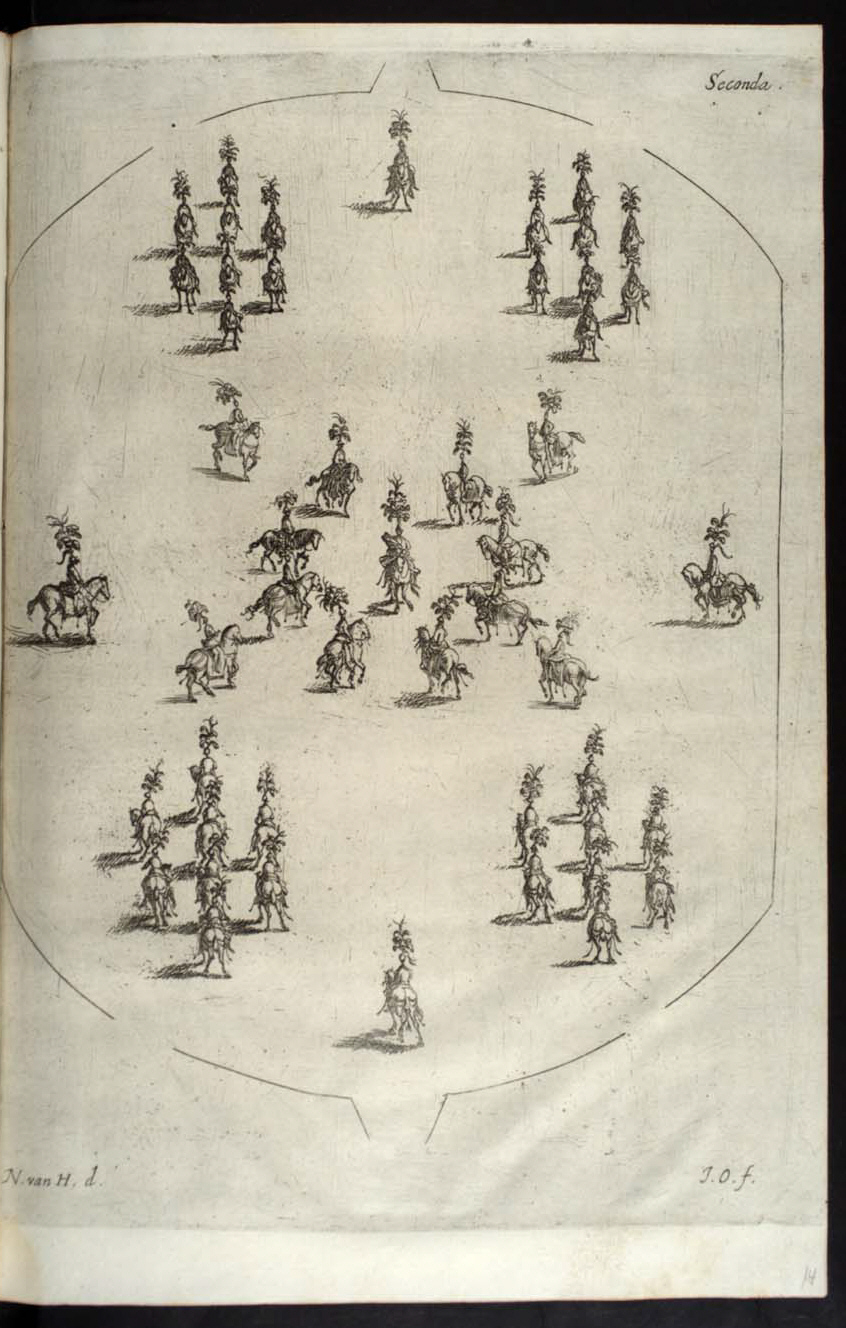 Seconda.
N. van H. d.
J. O. f.
14